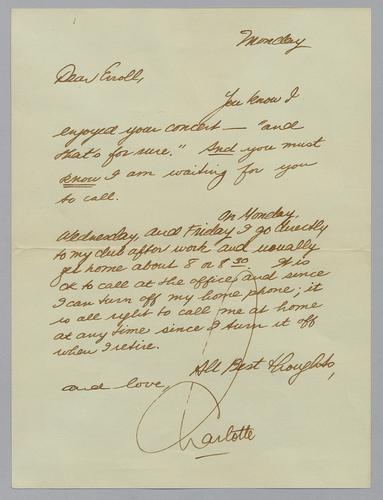 Monday
Dear Erroll,
You know I
enjoyed your concert — "and
that's for sure." And you must
know I am waiting for you
to call.
On Monday,
Wednesday, and Friday I go directly
to my club after work and usually
get home about 8 or 8:30 It is
ok to call at the office and since
I can turn off my home phone; it
is all right to call me at home
at any time since I turn it off
when I retire.
All Best thoughts,
and love,
Charlotte